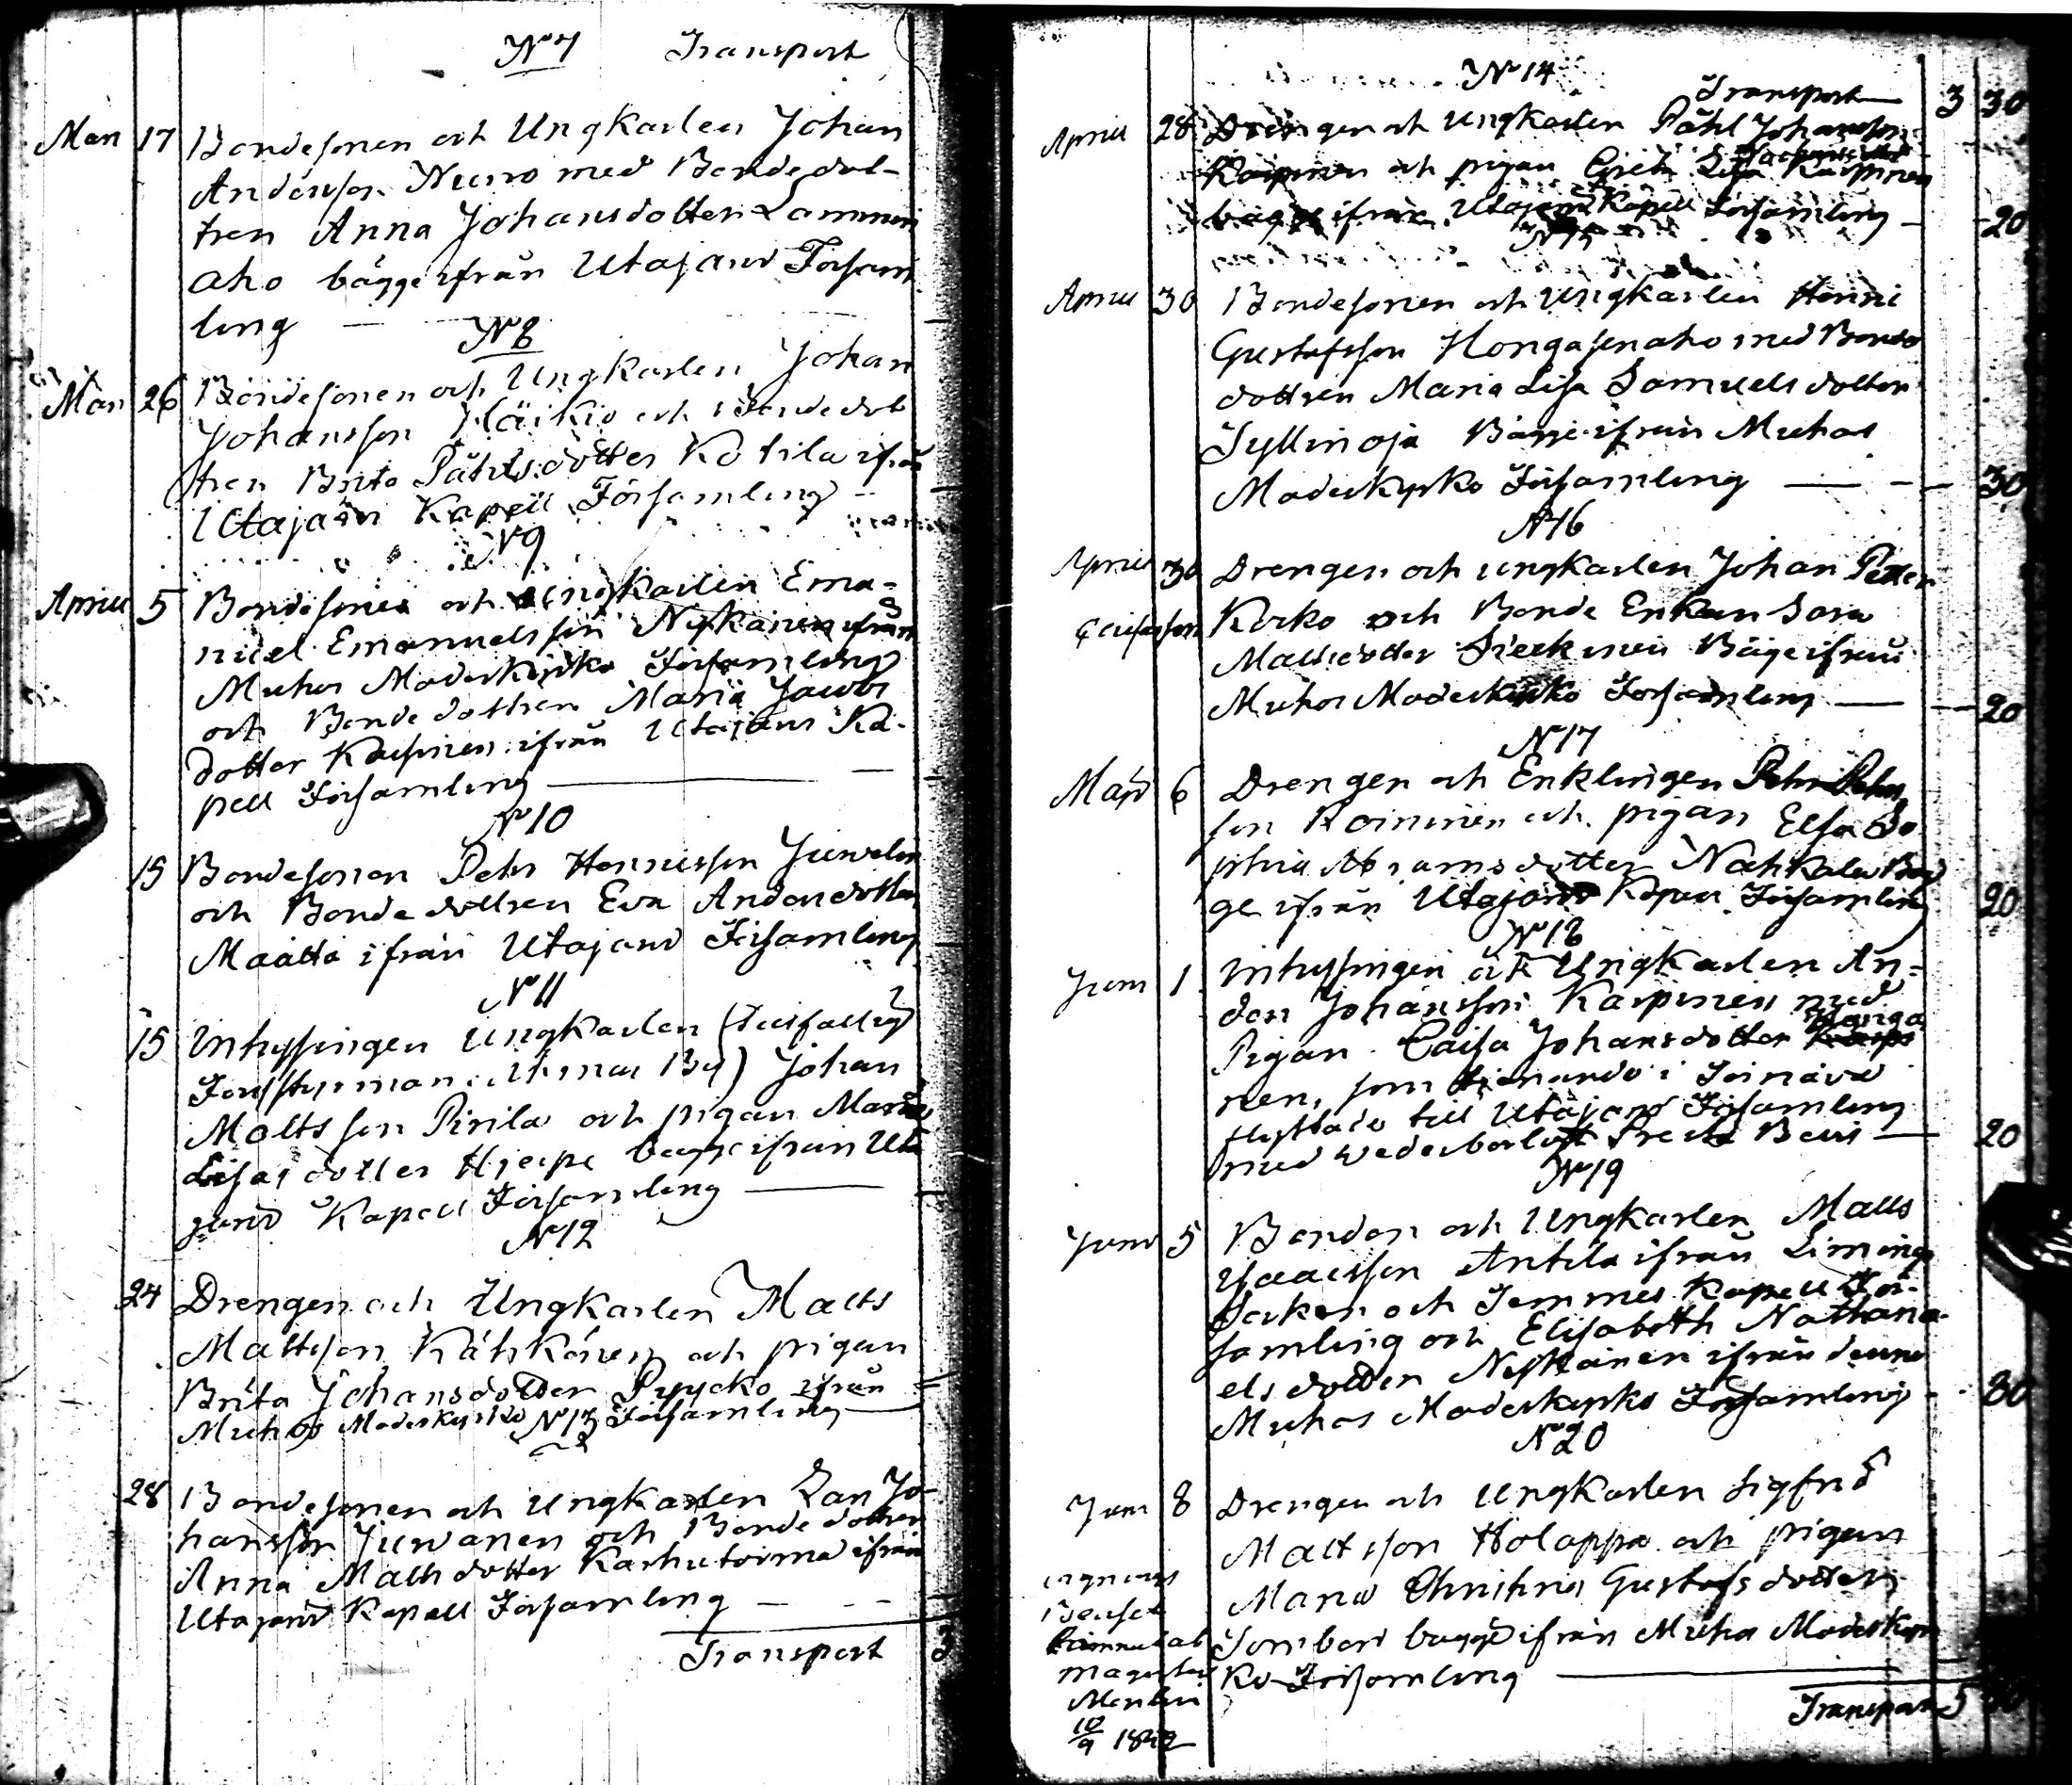 No 7 Transport
Mars 17 Bondesonen och Ungkarlen Johan
Andersson Nuno med Bondedot-
tren Anna Johansdotter Lammin
aho bägge ifrån Utajärvi Församl
ling
No 8
Mars 26 Bondesonen och Ungkarlen Johan
Johansson Härkiö och Bondedot
tren Brita Påhlsdotter Kotila ifrån
Utajärvi Kapell Församling
No 9
Aprill 5 Bondesonen och Ungkarlen Ema=
nuel Emanuelsson Nyskänen ifrån
Muhos Moderkyrko Församling
och Bondedottren Maria Jacobs
dotter Karpinen ifrån Utajärvi Ka-
pell Församling
No 10
15 Bondesonen Pehr Henricsson Juvelin
och Bondedottren Eva Andersdotter
Määttä ifrån Utajärvi Församling
No 11
15 Inhysingen Ungkarlen (tillfällig
Ahmas By) Johan
Mattsson Pirilä och pigan Maria
Lisasdotter Hjerpe bägge ifrån Uta
järvi Kapell Församling
No 12
24 Drengen och Ungkarlen Matts
Mattsson Kähkönen och pigan
Brita Johansdotter Pyycko ifrån
Muhos Moderkyrko Församling
No 13
28 Bondesonen och Ungkarlen Lars Jo-
hansson Juvanen och Bondedottren
Anna Mattsdotter Karhutörmä ifrån
Utajärvi Kapell Församling
Transport 3
No 14
Transport 3 30
Aprill 28 Drengen och Ungkarlen Påhl Johansson
Karpinen och pigan Greta Lisa Karpinen
bägge ifrån Utajärvi Kapell Församling 20
No 15
Aprill 30 Bondesonen och Ungkarlen Henric
Gustafsson Hongasenaho med Bonde
dottren Maria Lisa Samuelsdotter
Syllinoja Bägge ifrån Muhos
Moderkyrko Församling 30
No 16
Aprill 30 Drengen och ungkarlen Johan Petter
Gustafsson Korko och Bonde Enkan Sara
Mattsdotter Bägge ifrån
Muhos Moderkyrko Församling 20
No 17
Maji 6 Drengen och Enklingen Pehr Pehrs
son Roininen och pigan Elsa So
phia Abramsdotter Nahkala Bäg
ge ifrån Utajärvi Kapell Församling 20
No 18
Juni 1 Inhysingen och Ungkarlen An=
ders Johansson Karpinen med
Pigan Caisa Johansdotter Hanga
nen, som tjenande i Soinävä
flyttade till Utajärvi Församling
med wederbörligt Preste Bevis 20
No 19
Juni 5 Bonden och Ungkarlen Matts
Isaacsson Antila ifrån Limingo
Socken och Temmes Kapell För-
samling och Elisabeth Nathana-
elsdotter Nyskänen ifrån denna
Muhos Moderkyrko Församling 80
No 20
Juni 8 Drengen och Ungkarlen Sigfrid
Mattsson Holappa och pigan
Maria Christina Gustafsdotter
Sombari bägge ifrån Muhos Moderkyr
ko Församling
Transport 5
10/9 1842